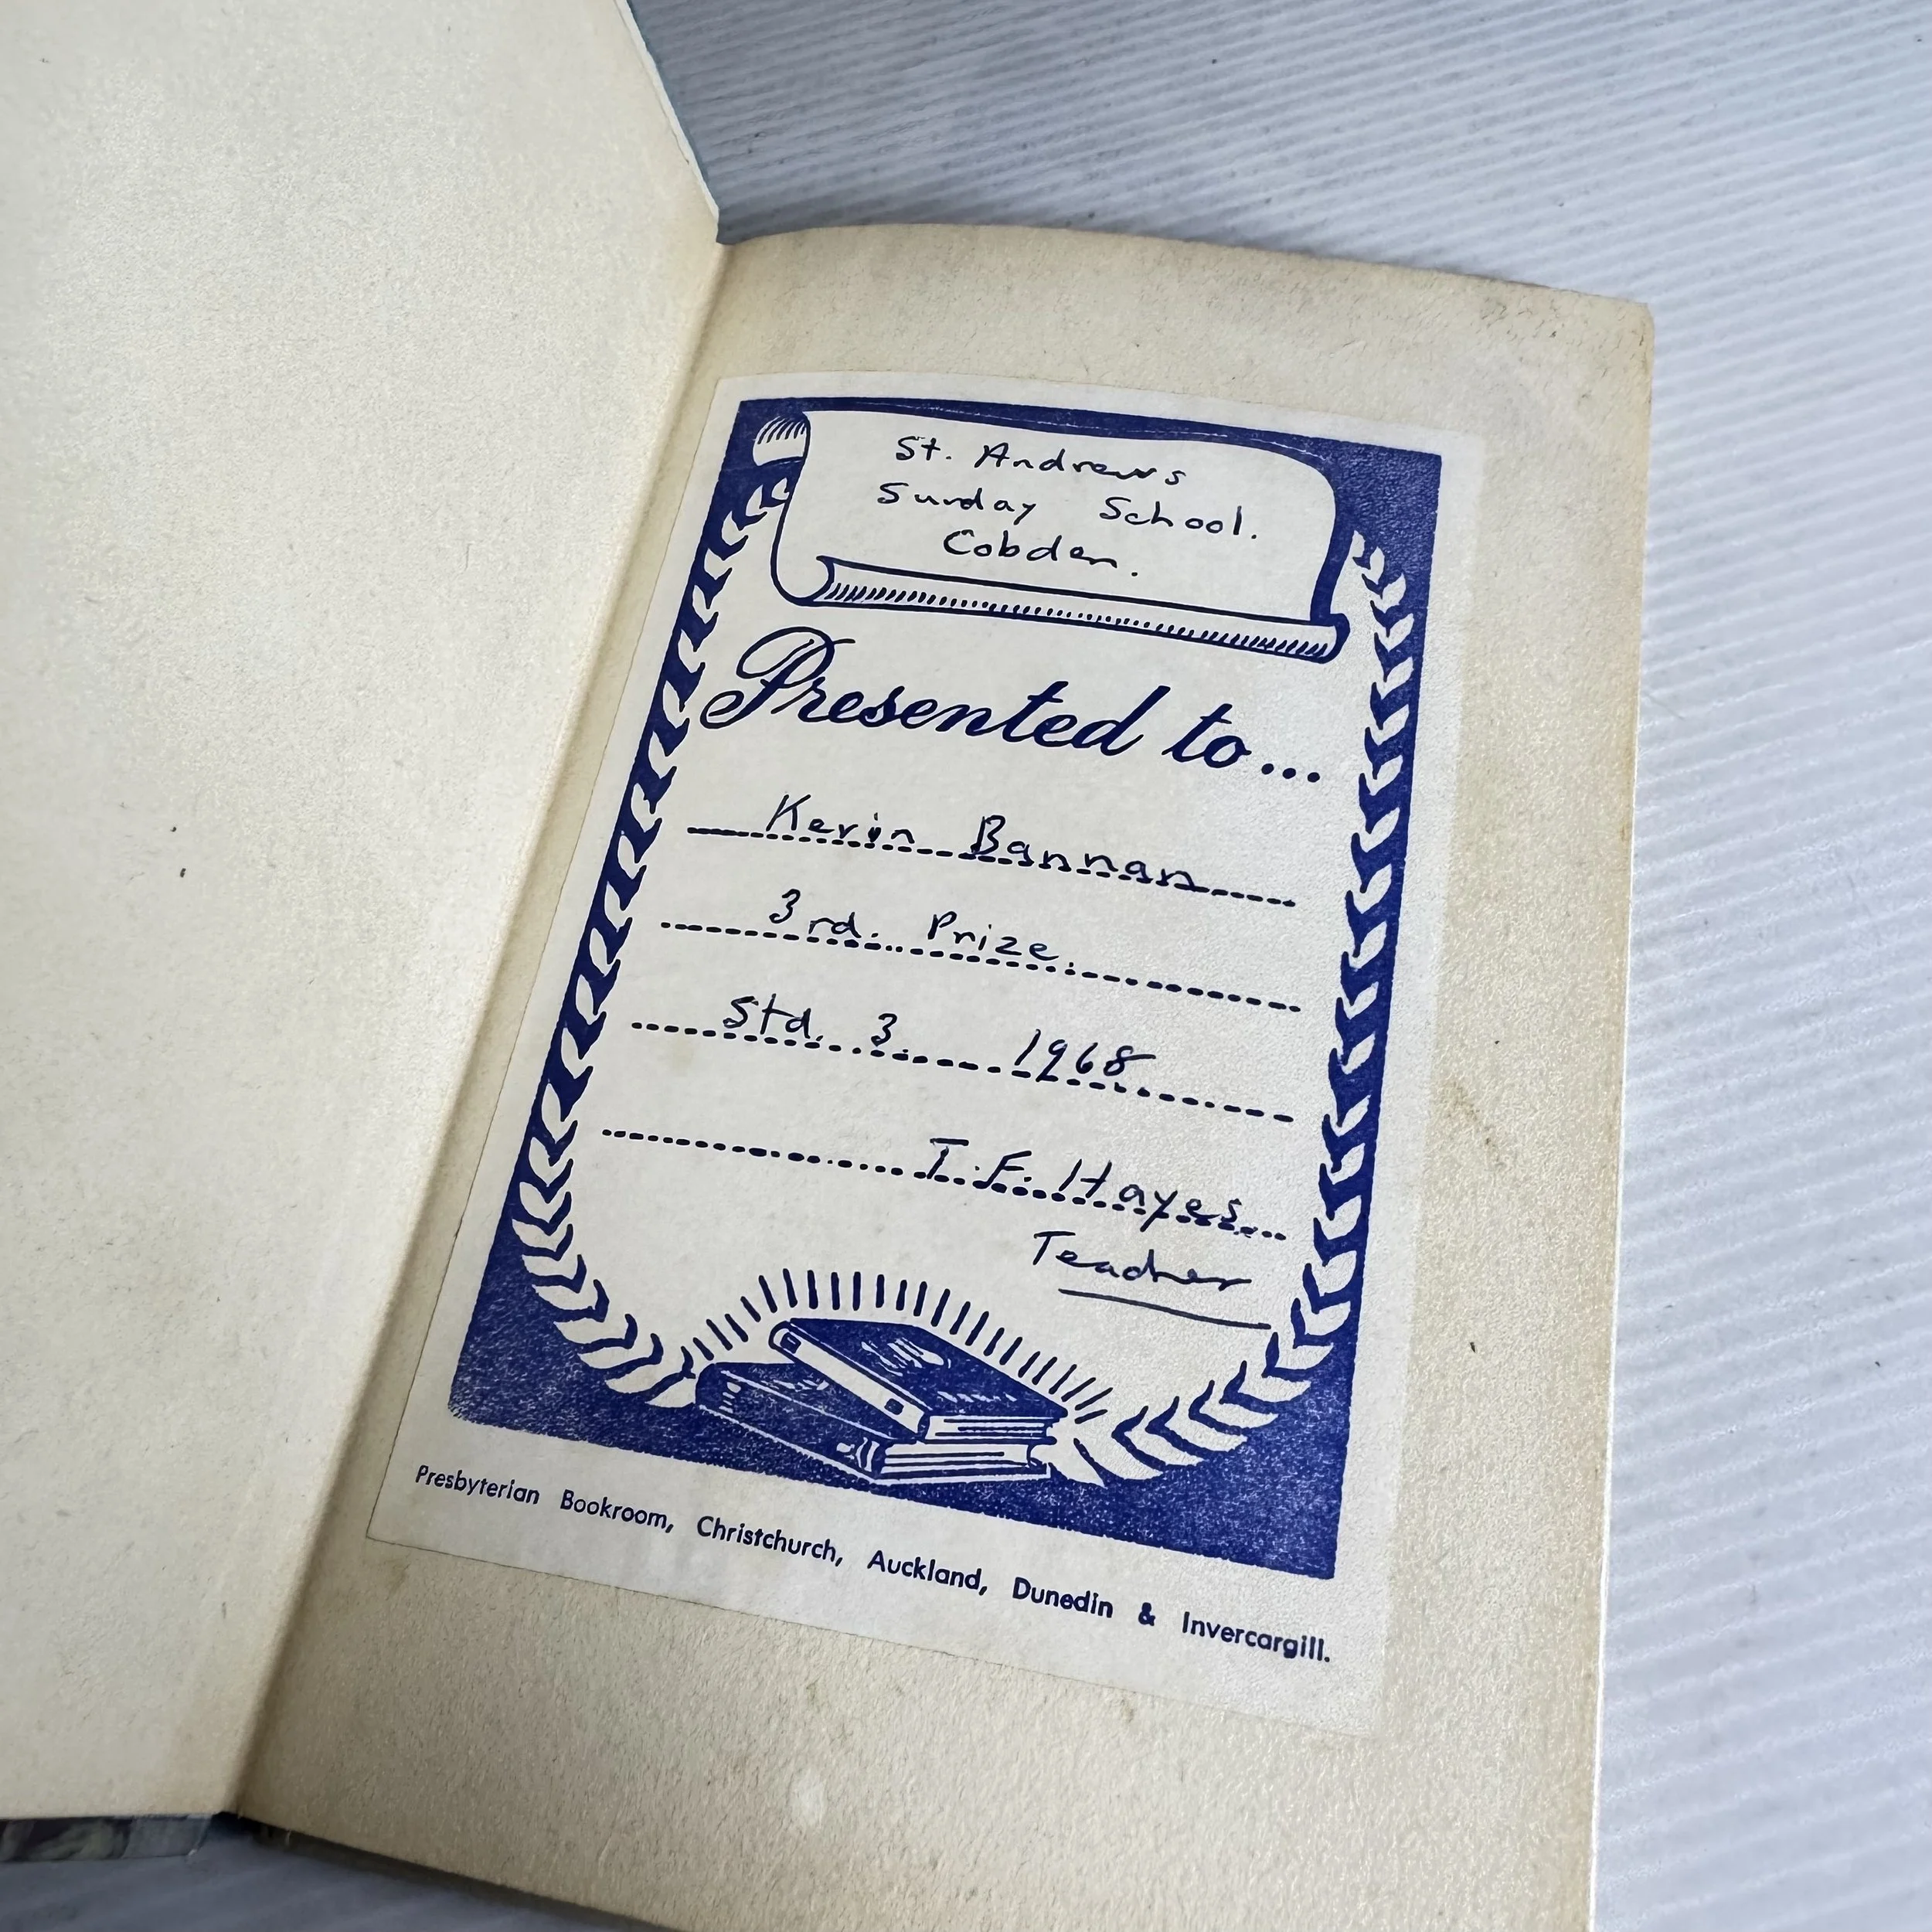 St. Andrews
Sunday School.
Cobden.
Presented to...
Kevin Bannan
3rd. Prize.
Std. 3. 1968
T. F. Hayes
Teacher
Presbyterian Bookroom, Christchurch, Auckland, Dunedin & Invercargill.